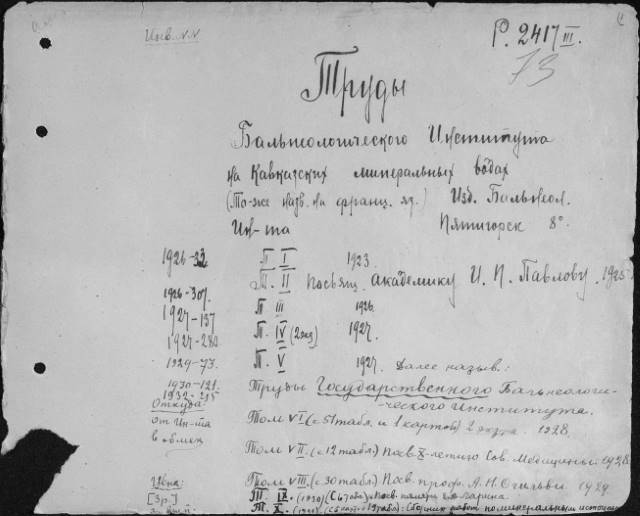 Инв. №№
Р. 2417 III.
73
Труды
Бальнеологического Института
на Кавказских минеральных водах
(То-же назв. на франц. яз.) Изд. Бальнеол.
Ин-та Пятигорск 8°.
1926-32 Т. I 1923
Т. II Посвящ. Академику И. П. Павлову. 1925
1926-307. Т. III 1926
1927-137 Т. IV (2 экз) 1927.
1927-282
1929-73. Т. V 1927. Далее назыв.:
1930-121. Труды Государственного Бальнеологи-
1932-215 ческого Института.
Откуда: Том VI (с 51 табл. и 1 картой) 2 экз. 1928.
от Ин-та
в обмен
Том VII (с 12 табл.) Посв. X-летию Сов. Медицины. 1928
Цена: Том VIII. (с 30 табл.) Посв. проф. А. Н. Огильви 1929
[3р.] Т. IX. (1930) (с 6 табл.) Посв. памяти
Т. X. Сборник работ по минеральным